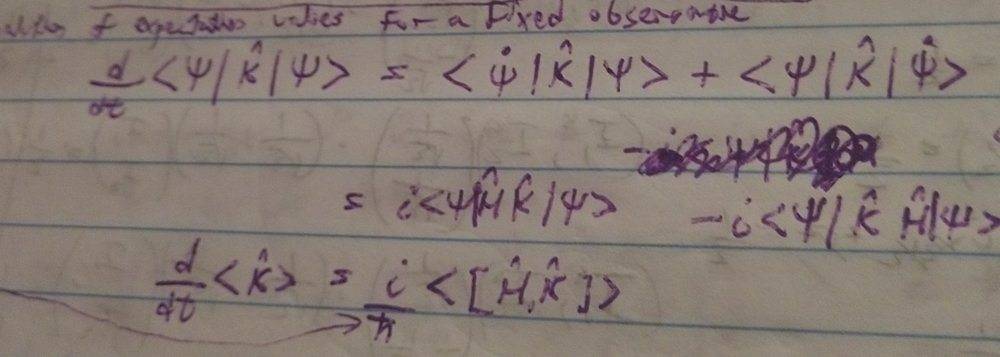 of expectation values for a Fixed observable
d/dt <Ψ|K̂|Ψ> = <Ψ̇|K̂|Ψ> + <Ψ|K̂|Ψ̇>
= i<Ψ|ĤK̂|Ψ> - i<Ψ|K̂Ĥ|Ψ>
d/dt <K̂> = i/ħ <[Ĥ,K̂]>